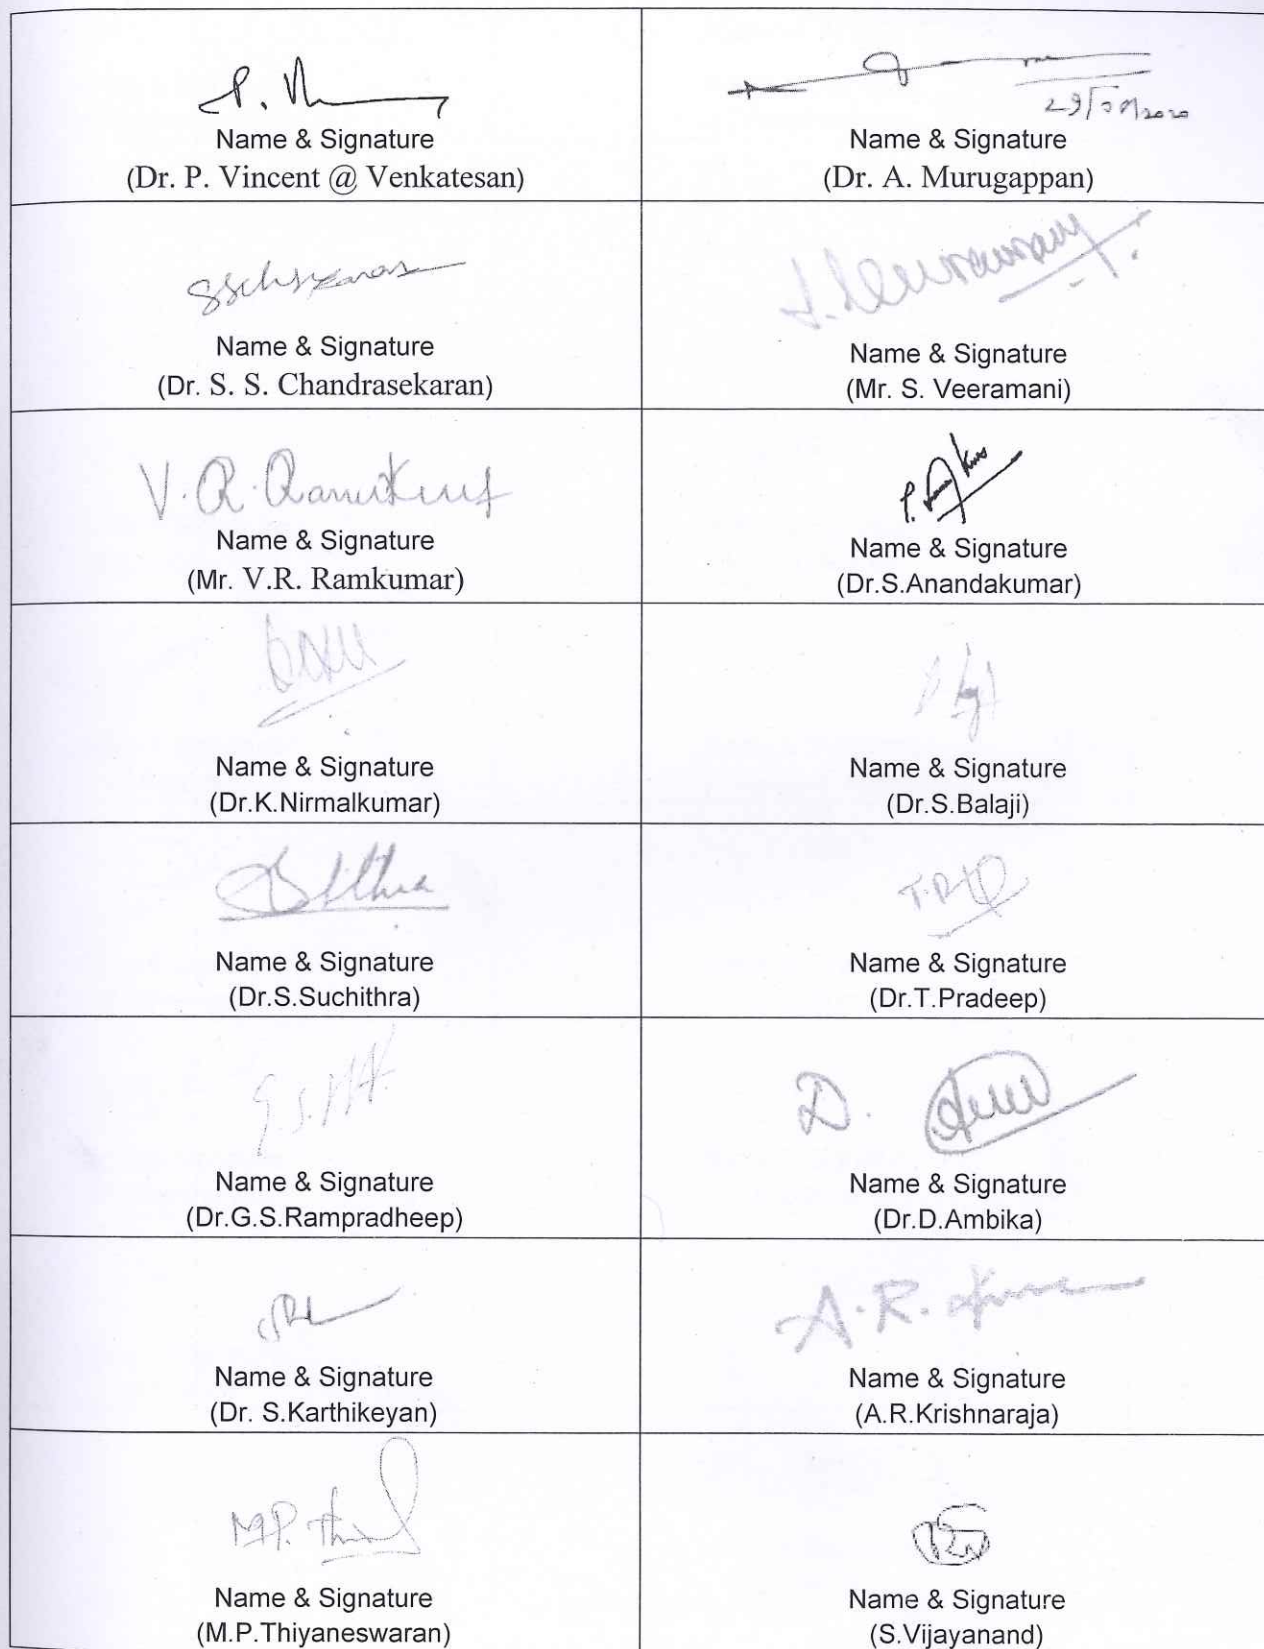 P. V
29/  /2020
Name & Signature
(Dr. P. Vincent @ Venkatesan)
Name & Signature
(Dr. A. Murugappan)
Name & Signature
(Dr. S. S. Chandrasekaran)
Name & Signature
(Mr. S. Veeramani)
V. R. Ramkumar
Name & Signature
(Mr. V.R. Ramkumar)
Name & Signature
(Dr.S.Anandakumar)
Name & Signature
(Dr.K.Nirmalkumar)
Name & Signature
(Dr.S.Balaji)
Name & Signature
(Dr.S.Suchithra)
Name & Signature
(Dr.T.Pradeep)
G.S.
Name & Signature
(Dr.G.S.Rampradheep)
D.
Name & Signature
(Dr.D.Ambika)
Name & Signature
(Dr. S.Karthikeyan)
A.R.
Name & Signature
(A.R.Krishnaraja)
M.P.
Name & Signature
(M.P.Thiyaneswaran)
Name & Signature
(S.Vijayanand)